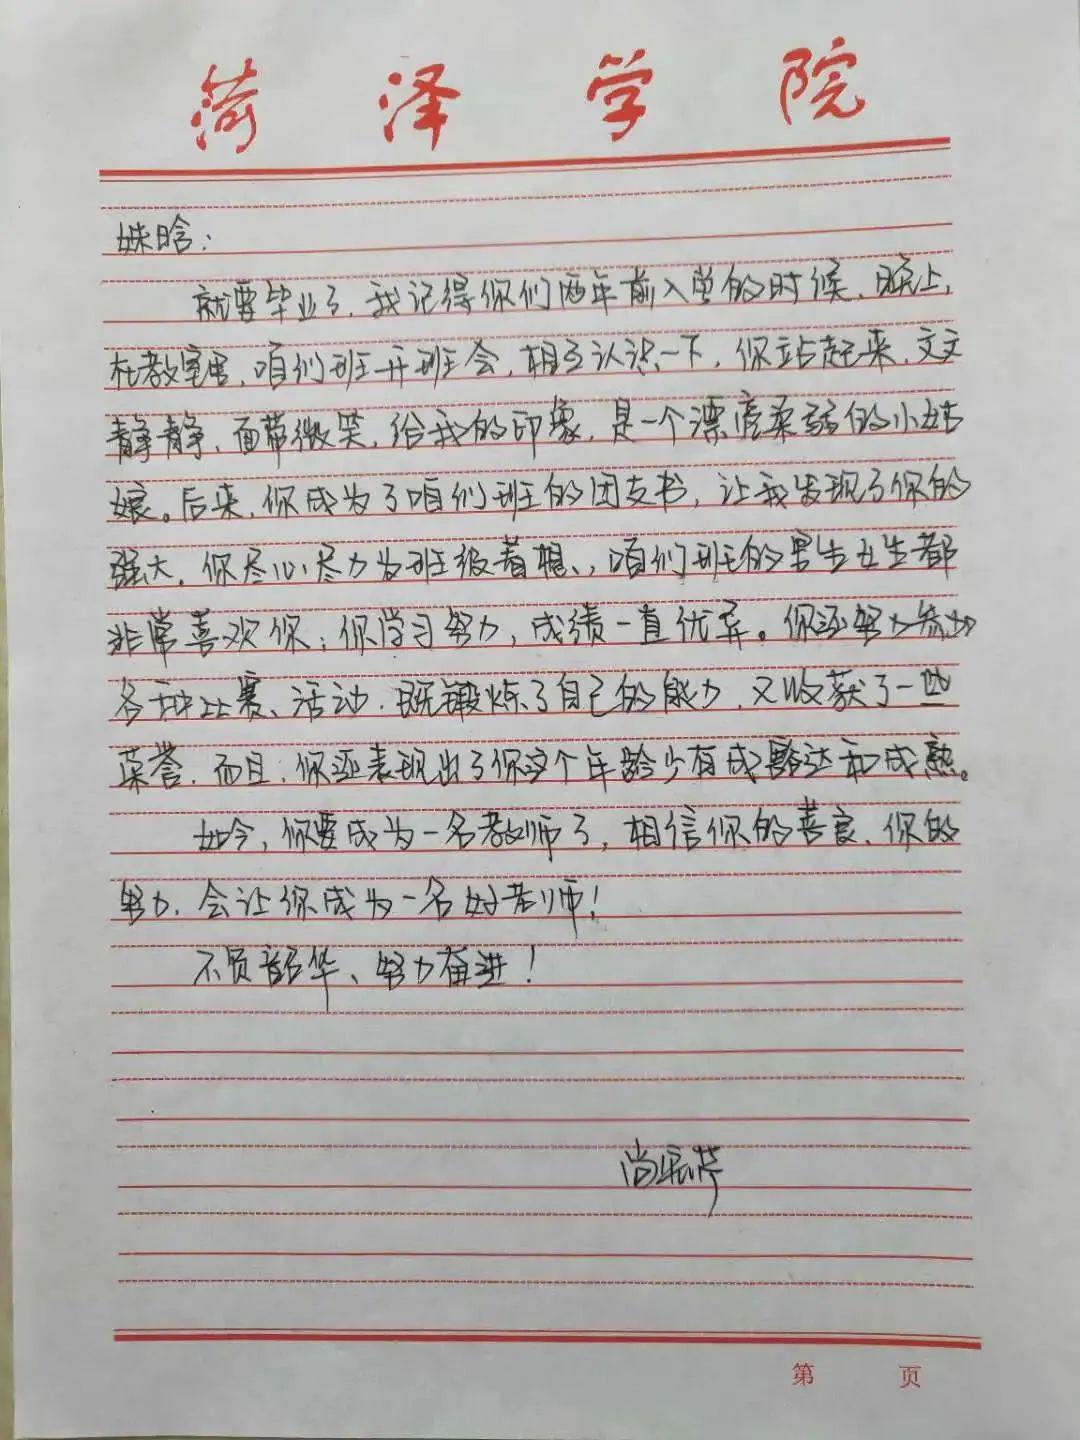 菏泽学院
姝晗：
就要毕业了，我记得你们两年前入学的时候，晚上，
在教室里，咱们班开班会，相互认识一下，你站起来，文文
静静，面带微笑，给我的印象，是一个漂亮柔弱的小姑
娘。后来，你成为了咱们班的团支书，让我发现了你的
强大，你尽心尽力为班级着想，咱们班的男生女生都
非常喜欢你；你学习努力，成绩一直优异。你还努力参加
各种比赛、活动，既锻炼了自己的能力，又收获了一些
荣誉，而且，你还表现出了你这个年龄少有成豁达和成熟。
如今，你要成为一名教师了，相信你的善良、你的
努力，会让你成为一名好老师！
不负韶华、努力奋进！
第 页